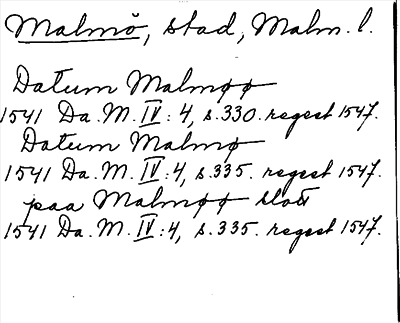 Malmö, stad, Malm. l.
Datum Malmøø
1541 Da. M. IV: 4, s. 330. regest 1547.
Datum Malmø
1541 Da. M. IV: 4, s. 335. regest 1547.
paa Malmøø slott
1541 Da. M. IV: 4, s. 335. regest 1547.